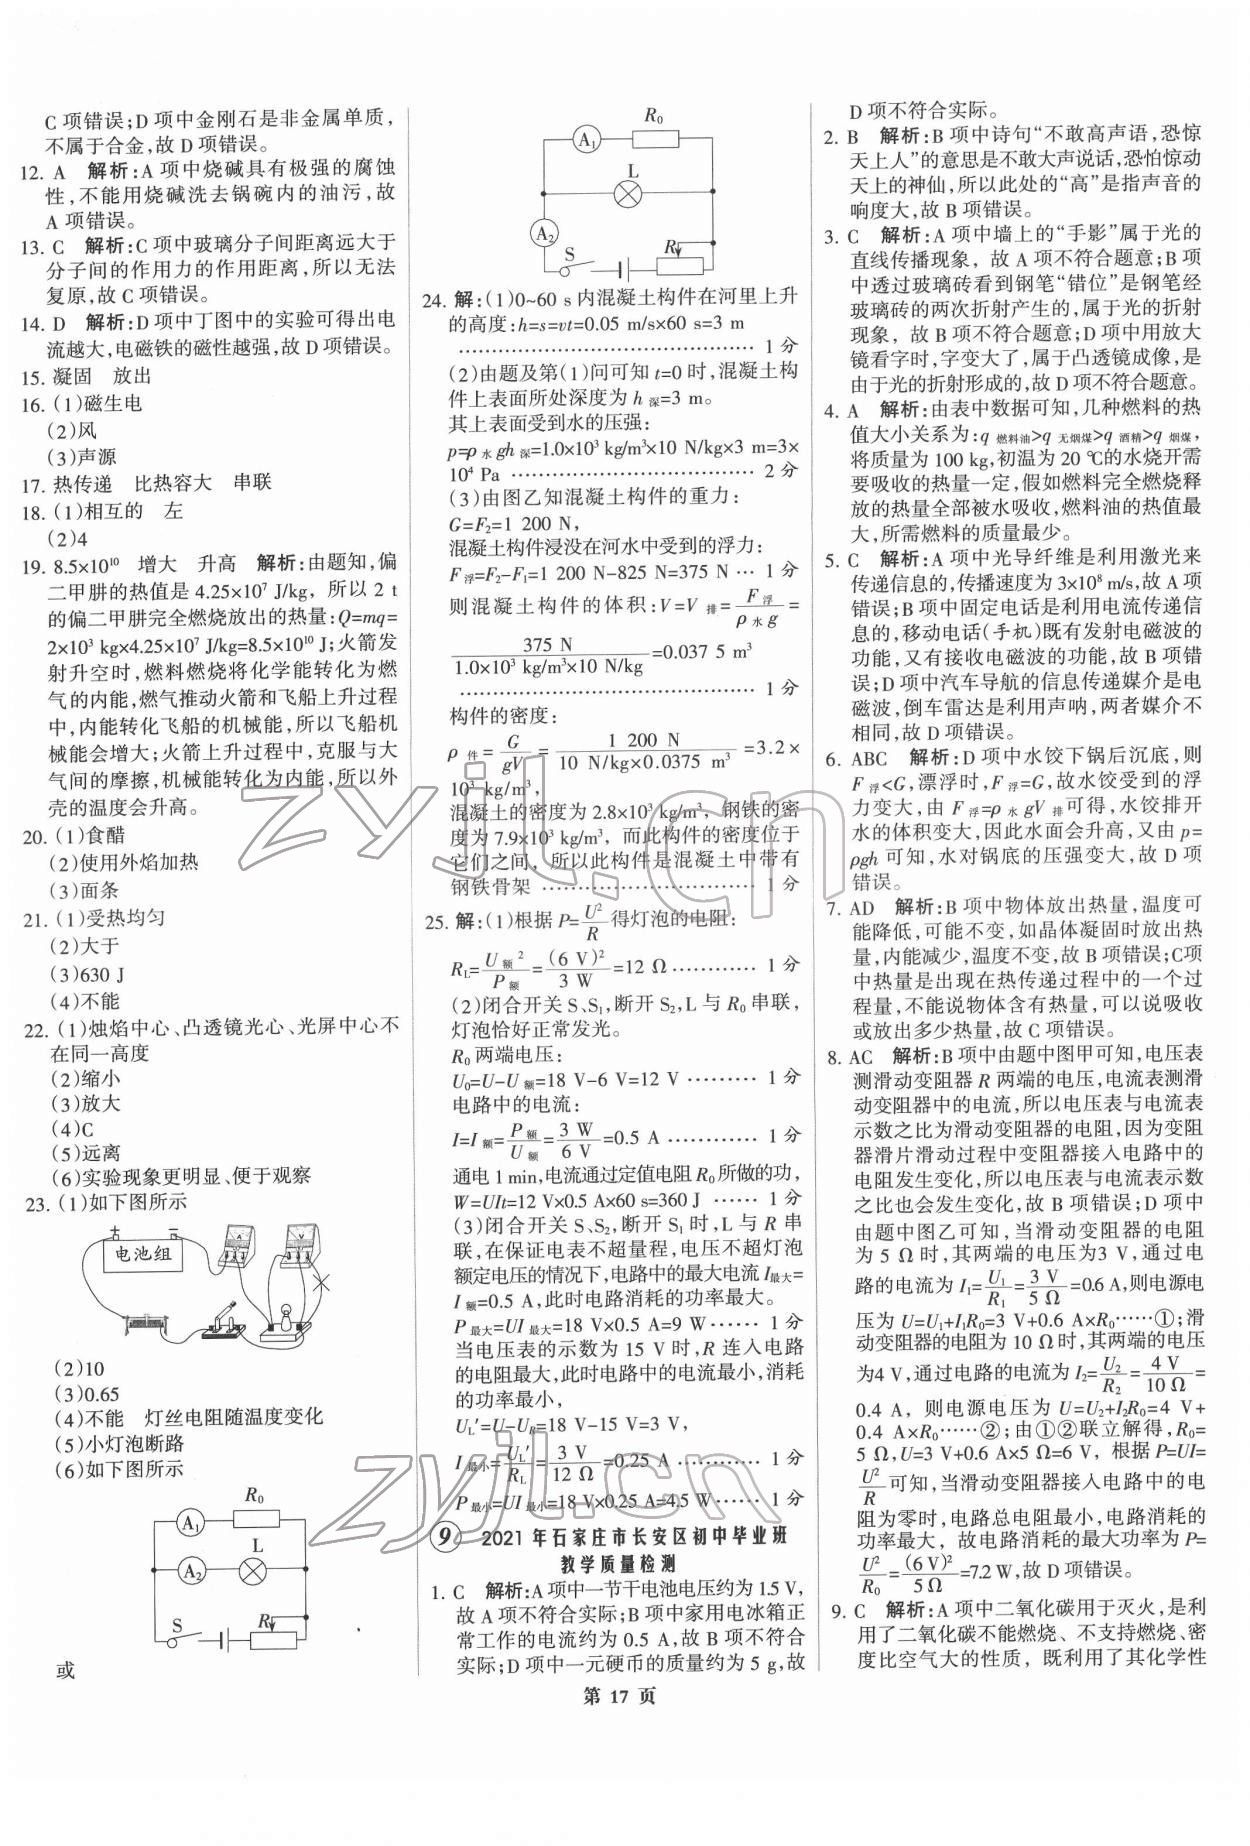 C 项错误;D 项中金刚石是非金属单质,
不属于合金,故 D 项错误。
12. A 解析:A 项中烧碱具有极强的腐蚀
性,不能用烧碱洗去锅碗内的油污,故
A 项错误。
13. C 解析:C 项中玻璃分子间距离远大于
分子间的作用力的作用距离,所以无法
复原,故 C 项错误。
14. D 解析:D 项中丁图中的实验可得出电
流越大,电磁铁的磁性越强,故 D 项错误。
15. 凝固 放出
16. (1)磁生电
(2)风
(3)声源
17. 热传递 比热容大 串联
18. (1)相互的 左
(2)4
19. 8.5×10¹⁰ 增大 升高 解析:由题知,偏
二甲肼的热值是 4.25×10⁷ J/kg，所以 2 t
的偏二甲肼完全燃烧放出的热量:Q=mq=
2×10³ kg×4.25×10⁷ J/kg=8.5×10¹⁰ J;火箭发
射升空时,燃料燃烧将化学能转化为燃
气的内能,燃气推动火箭和飞船上升过程
中,内能转化飞船的机械能,所以飞船机
械能会增大;火箭上升过程中,克服与大
气间的摩擦,机械能转化为内能,所以外
壳的温度会升高。
20. (1)食醋
(2)使用外焰加热
(3)面条
21. (1)受热均匀
(2)大于
(3)630 J
(4)不能
22. (1)烛焰中心、凸透镜光心、光屏中心不
在同一高度
(2)缩小
(3)放大
(4)C
(5)远离
(6)实验现象更明显、便于观察
23. (1)如下图所示
电池组
A
V
(2)10
(3)0.65
(4)不能 灯丝电阻随温度变化
(5)小灯泡断路
(6)如下图所示
R₀
A₁
L
A₂
S
R
或
R₀
A₁
L
A₂
S
R
24. 解:(1)0~60 s 内混凝土构件在河里上升
的高度:h=s=vt=0.05 m/s×60 s=3 m
………………………………… 1 分
(2)由题及第(1)问可知 t=0 时,混凝土构
件上表面所处深度为 h深=3 m。
其上表面受到水的压强:
p=ρ水gh深=1.0×10³ kg/m³×10 N/kg×3 m=3×
10⁴ Pa ………………………… 2 分
(3)由图乙知混凝土构件的重力:
G=F₂=1 200 N,
混凝土构件浸没在河水中受到的浮力:
F浮=F₂-F₁=1 200 N-825 N=375 N … 1 分
则混凝土构件的体积:V=V排=F浮/ρ水g=
375 N/1.0×10³ kg/m³×10 N/kg=0.037 5 m³
………………………………… 1 分
构件的密度:
ρ件=G/gV=1 200 N/10 N/kg×0.0375 m³=3.2×
10³ kg/m³,
混凝土的密度为 2.8×10³ kg/m³，钢铁的密
度为 7.9×10³ kg/m³，而此构件的密度位于
它们之间，所以此构件是混凝土中带有
钢铁骨架 ……………………… 1 分
25. 解:(1)根据 P=U²/R 得灯泡的电阻:
R_L=U额²/P额=(6 V)²/3 W=12 Ω………… 1 分
(2)闭合开关 S、S₁,断开 S₂,L 与 R₀ 串联,
灯泡恰好正常发光。
R₀ 两端电压:
U₀=U-U额=18 V-6 V=12 V ……… 1 分
电路中的电流:
I=I额=P额/U额=3 W/6 V=0.5 A ………… 1 分
通电 1 min,电流通过定值电阻 R₀ 所做的功,
W=UIt=12 V×0.5 A×60 s=360 J …… 1 分
(3)闭合开关 S、S₂,断开 S₁ 时,L 与 R 串
联,在保证电表不超量程,电压不超灯泡
额定电压的情况下,电路中的最大电流 I最大=
I额=0.5 A,此时电路消耗的功率最大。
P最大=UI最大=18 V×0.5 A=9 W…… 1 分
当电压表的示数为 15 V 时,R 连入电路
的电阻最大,此时电路中的电流最小,消耗
的功率最小,
U_L′=U-U_R=18 V-15 V=3 V,
I最小=U_L′/R_L=3 V/12 Ω=0.25 A ………… 1 分
P最小=UI最小=18 V×0.25 A=4.5 W…… 1 分
9 2021 年石家庄市长安区初中毕业班
教学质量检测
1. C 解析:A 项中一节干电池电压约为 1.5 V,
故 A 项不符合实际;B 项中家用电冰箱正
常工作的电流约为 0.5 A,故 B 项不符合
实际;D 项中一元硬币的质量约为 5 g,故
D 项不符合实际。
2. B 解析:B 项中诗句“不敢高声语,恐惊
天上人”的意思是不敢大声说话,恐怕惊动
天上的神仙,所以此处的“高”是指声音的
响度大,故 B 项错误。
3. C 解析:A 项中墙上的“手影”属于光的
直线传播现象，故 A 项不符合题意;B 项
中透过玻璃砖看到钢笔“错位”是钢笔经
玻璃砖的两次折射产生的,属于光的折射
现象，故 B 项不符合题意;D 项中用放大
镜看字时,字变大了,属于凸透镜成像,是
由于光的折射形成的,故 D 项不符合题意。
4. A 解析:由表中数据可知,几种燃料的热
值大小关系为:q燃料油>q无烟煤>q酒精>q烟煤,
将质量为 100 kg,初温为 20 ℃的水烧开需
要吸收的热量一定,假如燃料完全燃烧释
放的热量全部被水吸收,燃料油的热值最
大,所需燃料的质量最少。
5. C 解析:A 项中光导纤维是利用激光来
传递信息的,传播速度为 3×10⁸ m/s,故 A 项
错误;B 项中固定电话是利用电流传递信
息的,移动电话(手机)既有发射电磁波的
功能,又有接收电磁波的功能,故 B 项错
误;D 项中汽车导航的信息传递媒介是电
磁波,倒车雷达是利用声呐,两者媒介不
相同,故 D 项错误。
6. ABC 解析:D 项中水饺下锅后沉底,则
F浮<G,漂浮时,F浮=G,故水饺受到的浮
力变大,由 F浮=ρ水gV排可得,水饺排开
水的体积变大,因此水面会升高,又由 p=
ρgh 可知,水对锅底的压强变大,故 D 项
错误。
7. AD 解析:B 项中物体放出热量,温度可
能降低,可能不变,如晶体凝固时放出热
量,内能减少,温度不变,故 B 项错误;C项
中热量是出现在热传递过程中的一个过
程量,不能说物体含有热量,可以说吸收
或放出多少热量,故 C 项错误。
8. AC 解析:B 项中由题中图甲可知,电压表
测滑动变阻器 R 两端的电压,电流表测滑
动变阻器中的电流,所以电压表与电流表
示数之比为滑动变阻器的电阻,因为变阻
器滑片滑动过程中变阻器接入电路中的
电阻发生变化,所以电压表与电流表示数
之比也会发生变化,故 B 项错误;D 项中
由题中图乙可知，当滑动变阻器的电阻
为 5 Ω 时,其两端的电压为3 V,通过电
路的电流为 I₁=U₁/R₁=3 V/5 Ω=0.6 A,则电源电
压为 U=U₁+I₁R₀=3 V+0.6 A×R₀……①;滑
动变阻器的电阻为 10 Ω 时,其两端的电压
为4 V,通过电路的电流为 I₂=U₂/R₂=4 V/10 Ω=
0.4 A，则电源电压为 U=U₂+I₂R₀=4 V+
0.4 A×R₀……②;由①②联立解得,R₀=
5 Ω,U=3 V+0.6 A×5 Ω=6 V，根据 P=UI=
U²/R 可知,当滑动变阻器接入电路中的电
阻为零时,电路总电阻最小,电路消耗的
功率最大，故电路消耗的最大功率为 P=
U²/R₀=(6 V)²/5 Ω=7.2 W,故 D 项错误。
9. C 解析:A 项中二氧化碳用于灭火,是利
用了二氧化碳不能燃烧、不支持燃烧、密
度比空气大的性质，既利用了其化学性
第 17 页
zyjl.cn
zyjl.cn